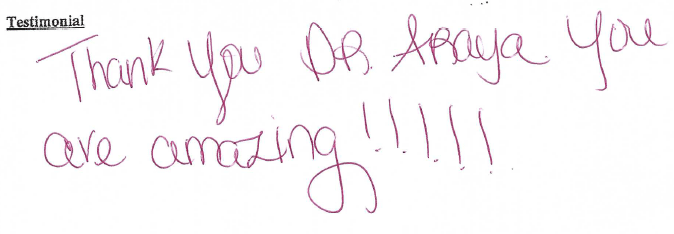 Testimonial
Thank you DR. Araya. You
are amazing!!!!!!